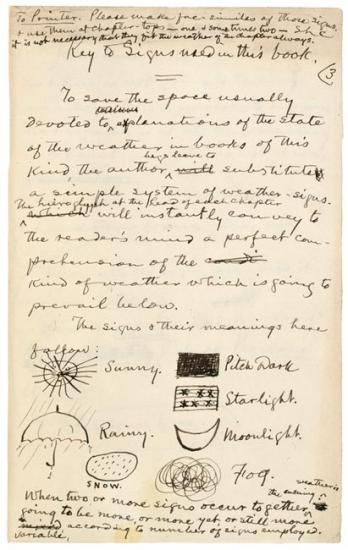 To Printer. Please make fac-similes of those signs,
& use them at chapter-tops — one & sometimes two — SLC
it is not necessary that they fit the weather of a chapter always.
Key to Signs used in this book.
(3
To save the space usually
devoted to explanations of the state
of the weather in books of this
kind, the author begs leave to substitute
a simple system of weather-signs.
The hieroglyph at the head of each chapter
will instantly convey to
the reader's mind a perfect com-
prehension of the
kind of weather which is going to
prevail below.
The signs & their meanings here
follow:
Sunny. Pitch Dark
Starlight.
Rainy. Moonlight.
SNOW. Fog.
When two or more signs occur together, the evening weather is
going to be more, or more yet, or still more
variable, according to number of signs employed.